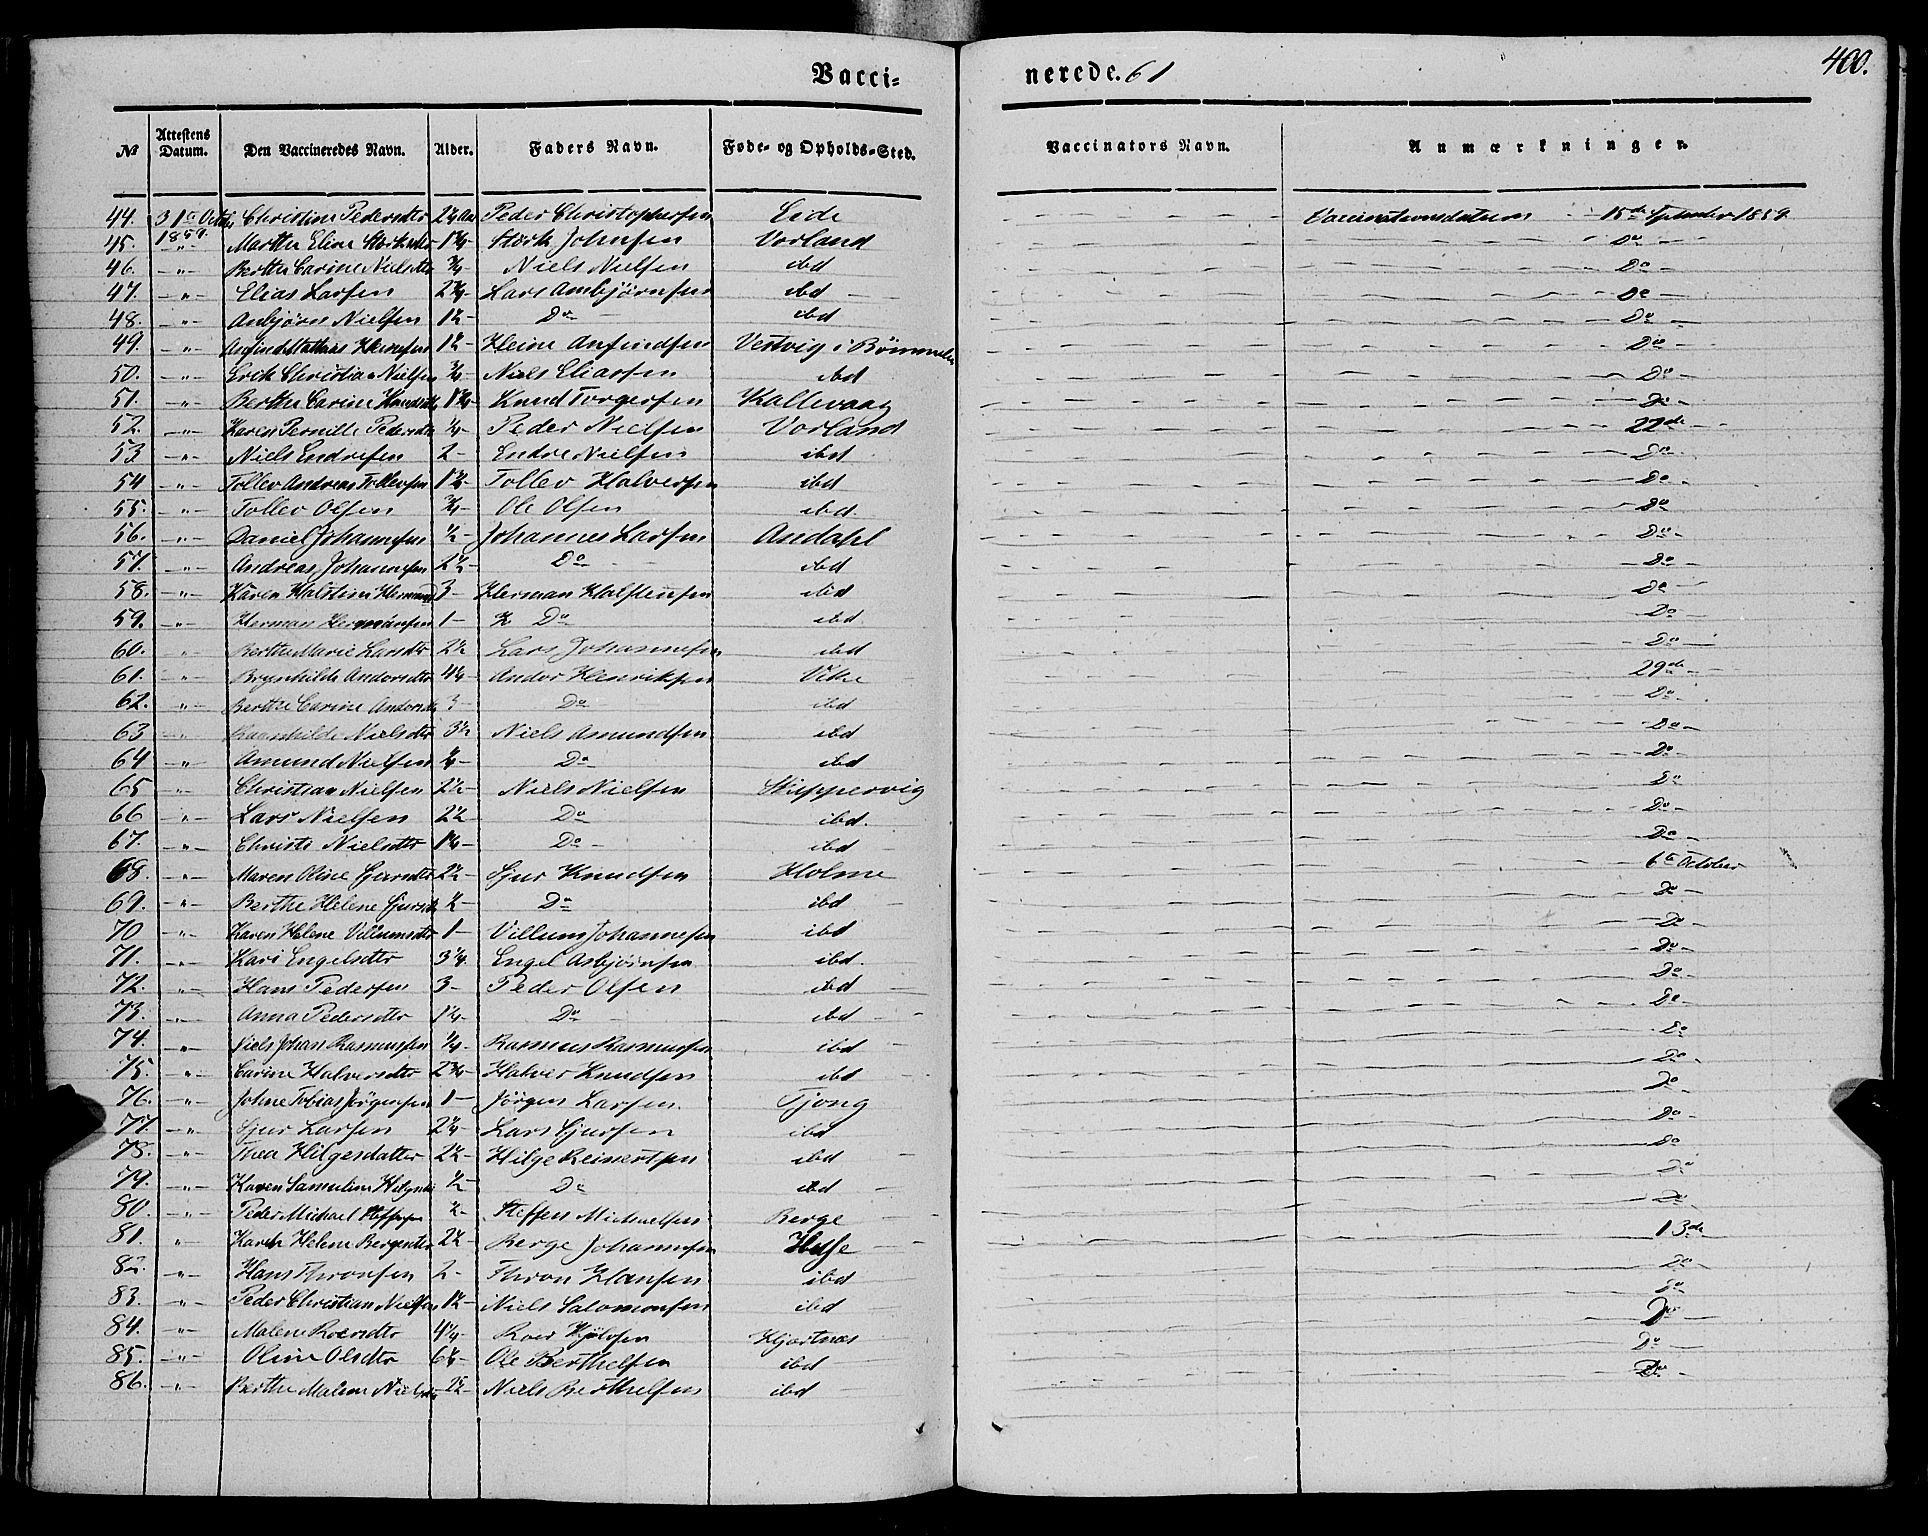 400.
Vacci- nerede. 61
No Attestens Datum. Den Vaccineredes Navn. Alder. Faders Navn. Føde- og Opholds-Sted. Vaccinators Navn. Anmærkninger.
44. 31te Octbr 1859. Christine Pedersdtr Peder Christophersen Eide Vaccinationsdatum 15de September 1859
45. -"- Marthe Eline Størksdtr Størk Johnsen Vorland Do
46. -"- Berthe Carine Nielsdtr 3/4 Niels Nielsen ibd Do
47. -"- Elias Larsen Lars Ambjørnsen ibd Do
48. -"- Anbjørn Nielsen 1½ Do ibd Do
49. -"- Anfind Mathias Heinesen 1½ Heine Anfindsen Vestvig i Bømmelen Do
50. -"- Erik Christian Nielsen 3/4 Niels Eliassen ibd Do
51. -"- Berthe Carine Knudsdtr Knud Torgersen Kallevaag Do
52. -"- Karen Pernille Pedersdtr Peder Nielsen Vorland 22de
53 -"- Niels Endresen 2 Endre Nielsen ibd Do
54 -"- Tollev Andreas Tollevsen Tollev Halversen ibd Do
55. -"- Tollev Olsen 3/4 Ole Olsen ibd. Do
56. -"- Daniel Johannesen ½ Johannes Larsen Andahl Do
57. -"- Andreas Johannesen 2½ Do ibd Do
58. -"- Karen Halstine Hermansd 3 Herman Halstensen ibd Do
59. -"- Herman Hermansen 1 Do ibd Do
60. -"- Berthe Marie Larsdtr 2½ Lars Johannesen ibd Do
61. -"- Brynhilde Andorsdtr Andor Henriksen Vike 29de
62. -"- Berthe Carine Andorsdtr 3 Do ibd Do
63 -"- Raanhilde Nielsdtr 3½ Niels Amundsen ibd Do
64 -"- Amund Nielsen Do ibd Do
65 -"- Christian Nielsen 2½ Niels Nielsen Skippervig Do
66 -"- Lars Nielsen 2½ Do ibd. Do
67. -"- Christi Nielsdtr Do ibd Do
68. -"- Maren Oline Sjursdtr 2½ Sjur Knudsen Holme 6te October
69. -"- Berthe Helene Sjursdtr ½ Do ibd Do
70 -"- Karen Helene Villumsdtr 1 Villum Johannesen ibd Do
71. -"- Kari Engelsdtr 3¼. Engel Asbjørnsen ibd. Do
72. -"- Hans Pedersen 3 Peder Olsen ibd Do
73. -"- Anna Pedersdtr Do ibd Do
74. -"- Niels Johan Rasmussen ¼ Rasmus Rasmussen ibd Do
75. -"- Carine Halversdtr 2¾ Halver Knudsen ibd Do
76. -"- Johne Tobias Jørgensen 1 Jørgen Larsen. Tjong Do
77. -"- Sjur Larsen Lars Sjursen ibd Do
78. -"- Thea Hilgesdatter 2½ Hilge Reinertsen ibd Do
79. -"- Karen Samuline Hilgesdtr ½ Do ibd Do
80. -"- Peder Michael Steffensen ½ Steffen Michaelsen Berge Do
81. -"- Karen Helene Bergesdtr 2½ Berge Johannesen 13de
82. -"- Hans Thronsen 2 Thron Hansen ibd Do
83. -"- Peder Christian Nielsen 1½ Niels Salomonsen ibd Do
84. -"- Malene Roersdtr 4¼ Roer Hjølvsen Hjortnæs Do
85. -"- Oline Olsdtr Ole Berthelsen ibd Do
86. -"- Berthe Malene Nielsdtr Niels Berthelsen ibd Do